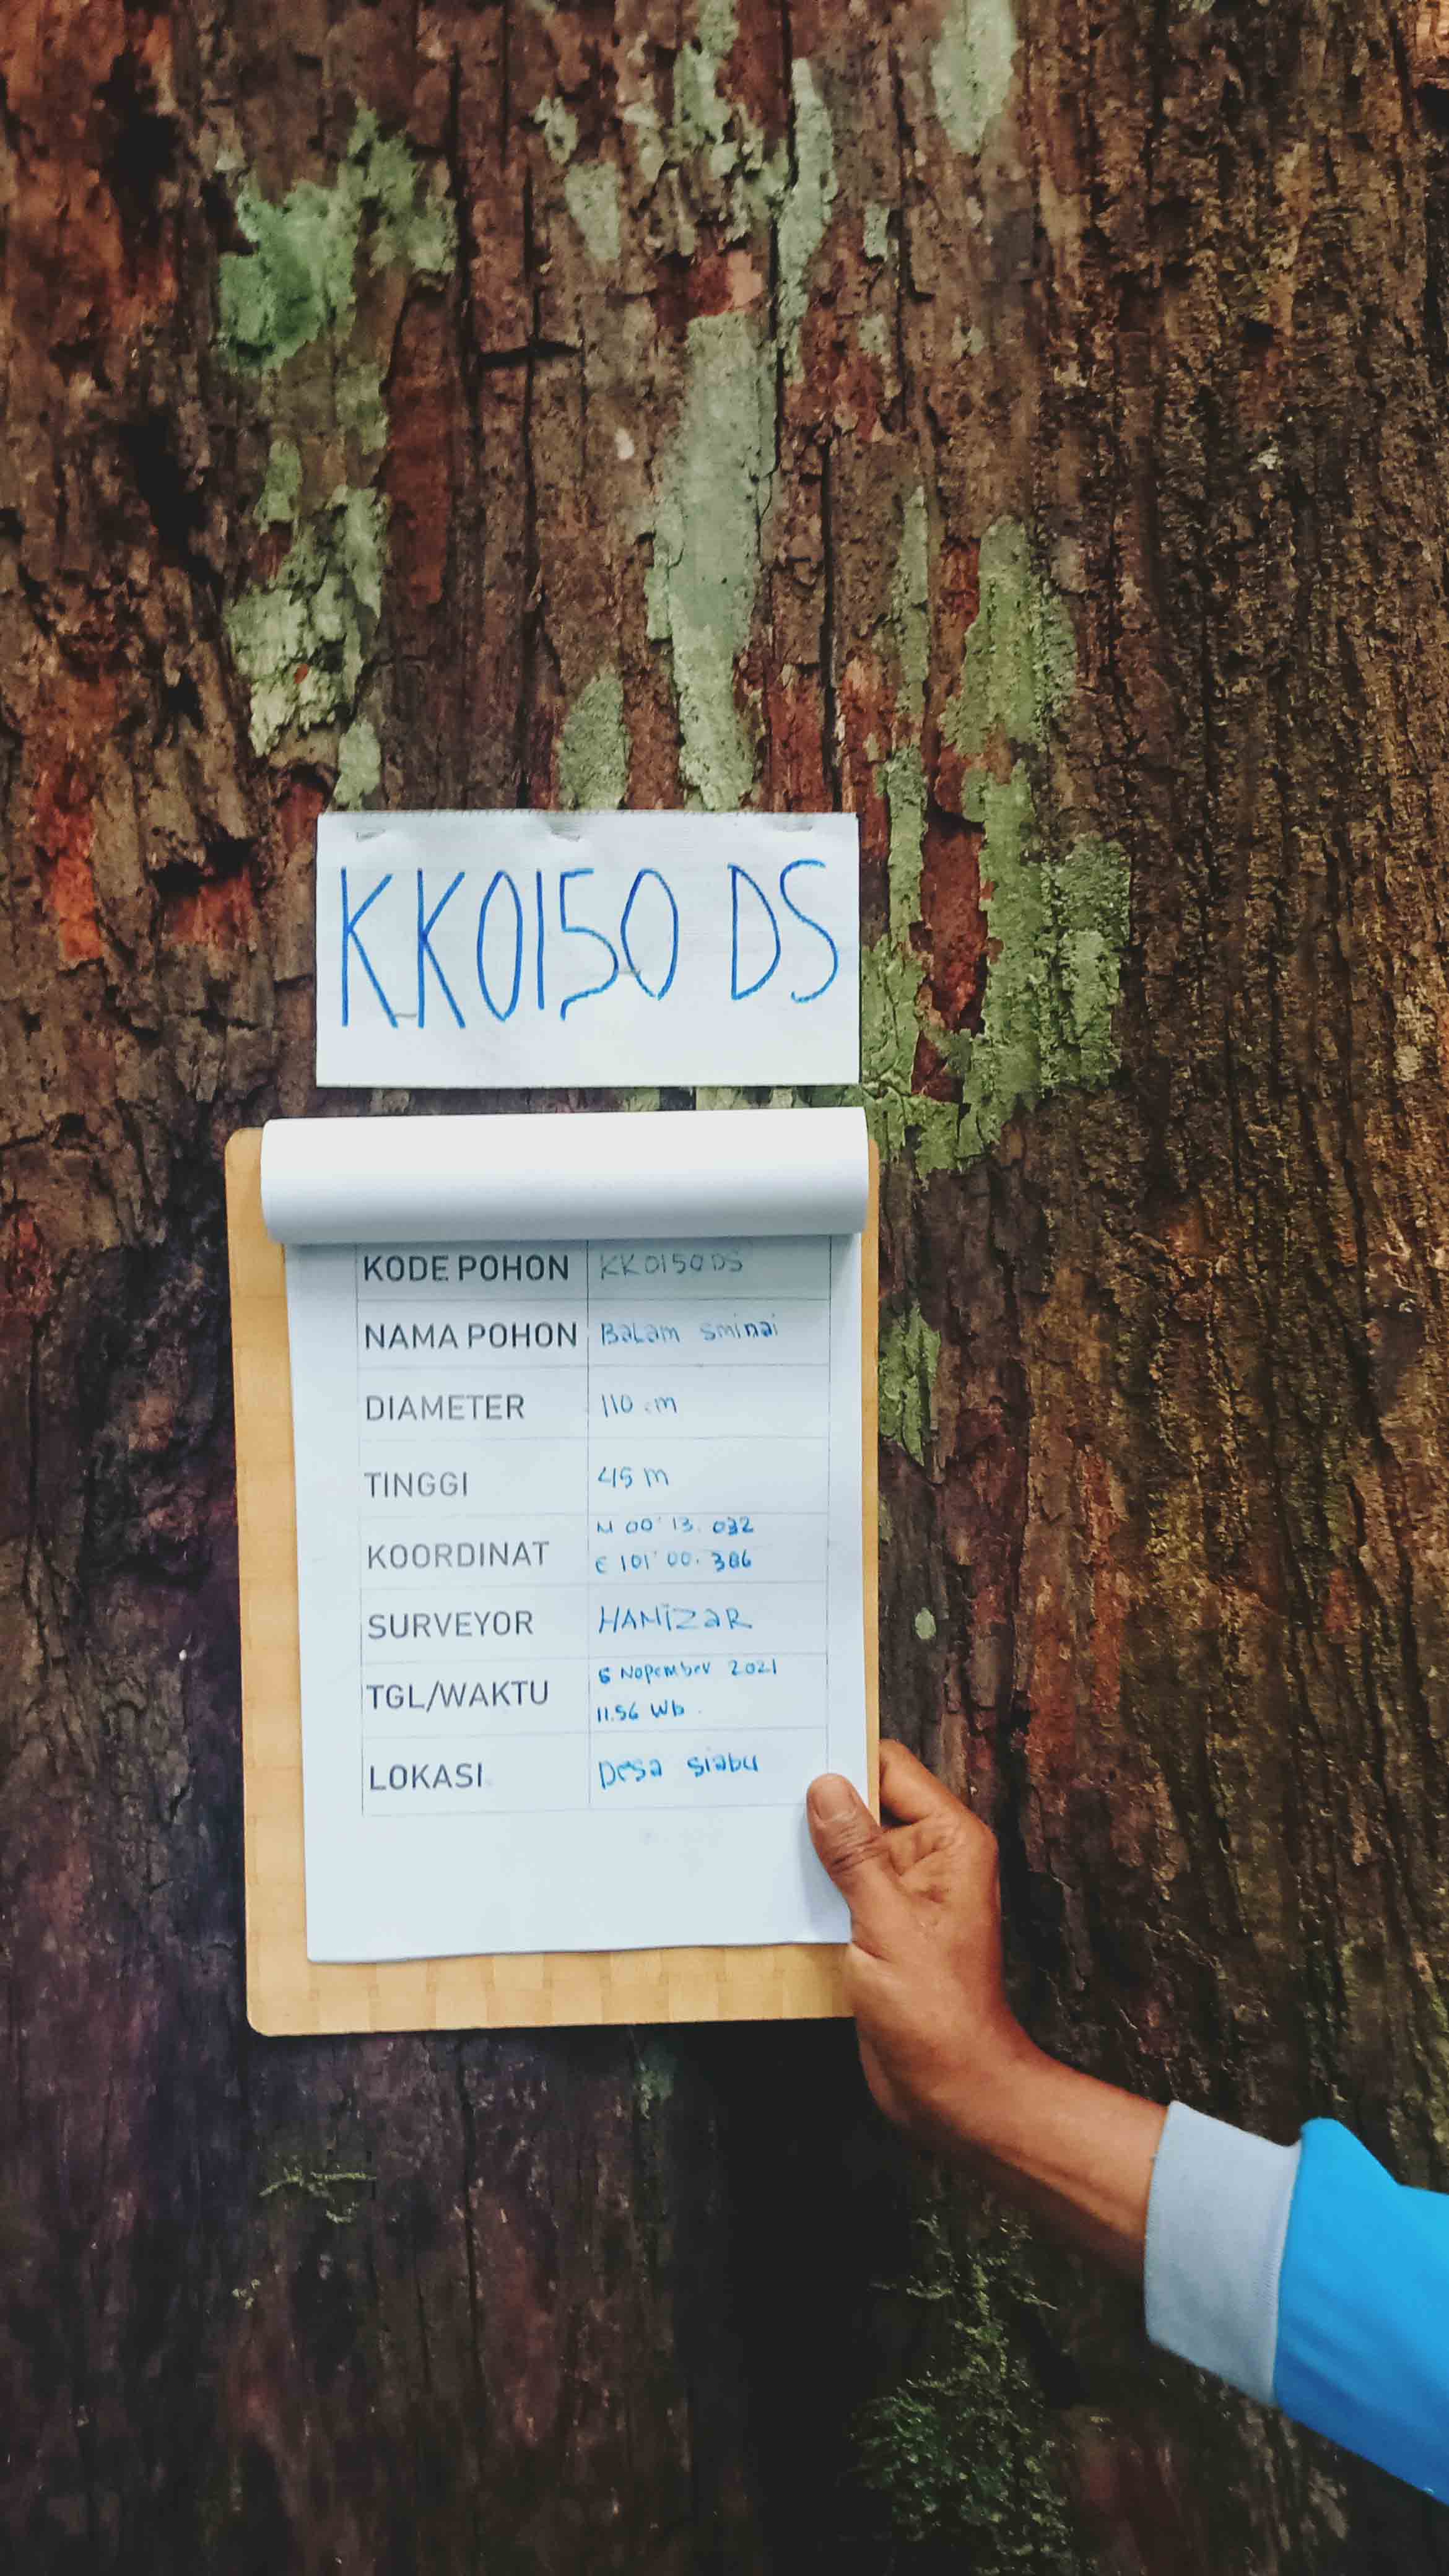 KK0150 DS
KODE POHON KK0150DS
NAMA POHON Balam sminai
DIAMETER 110 cm
TINGGI 45 m
KOORDINAT N 00° 13. 032
E 101° 00. 386
SURVEYOR HAMIZaR
TGL/WAKTU 5 Nopember 2021
11.56 Wb.
LOKASI Desa siabu